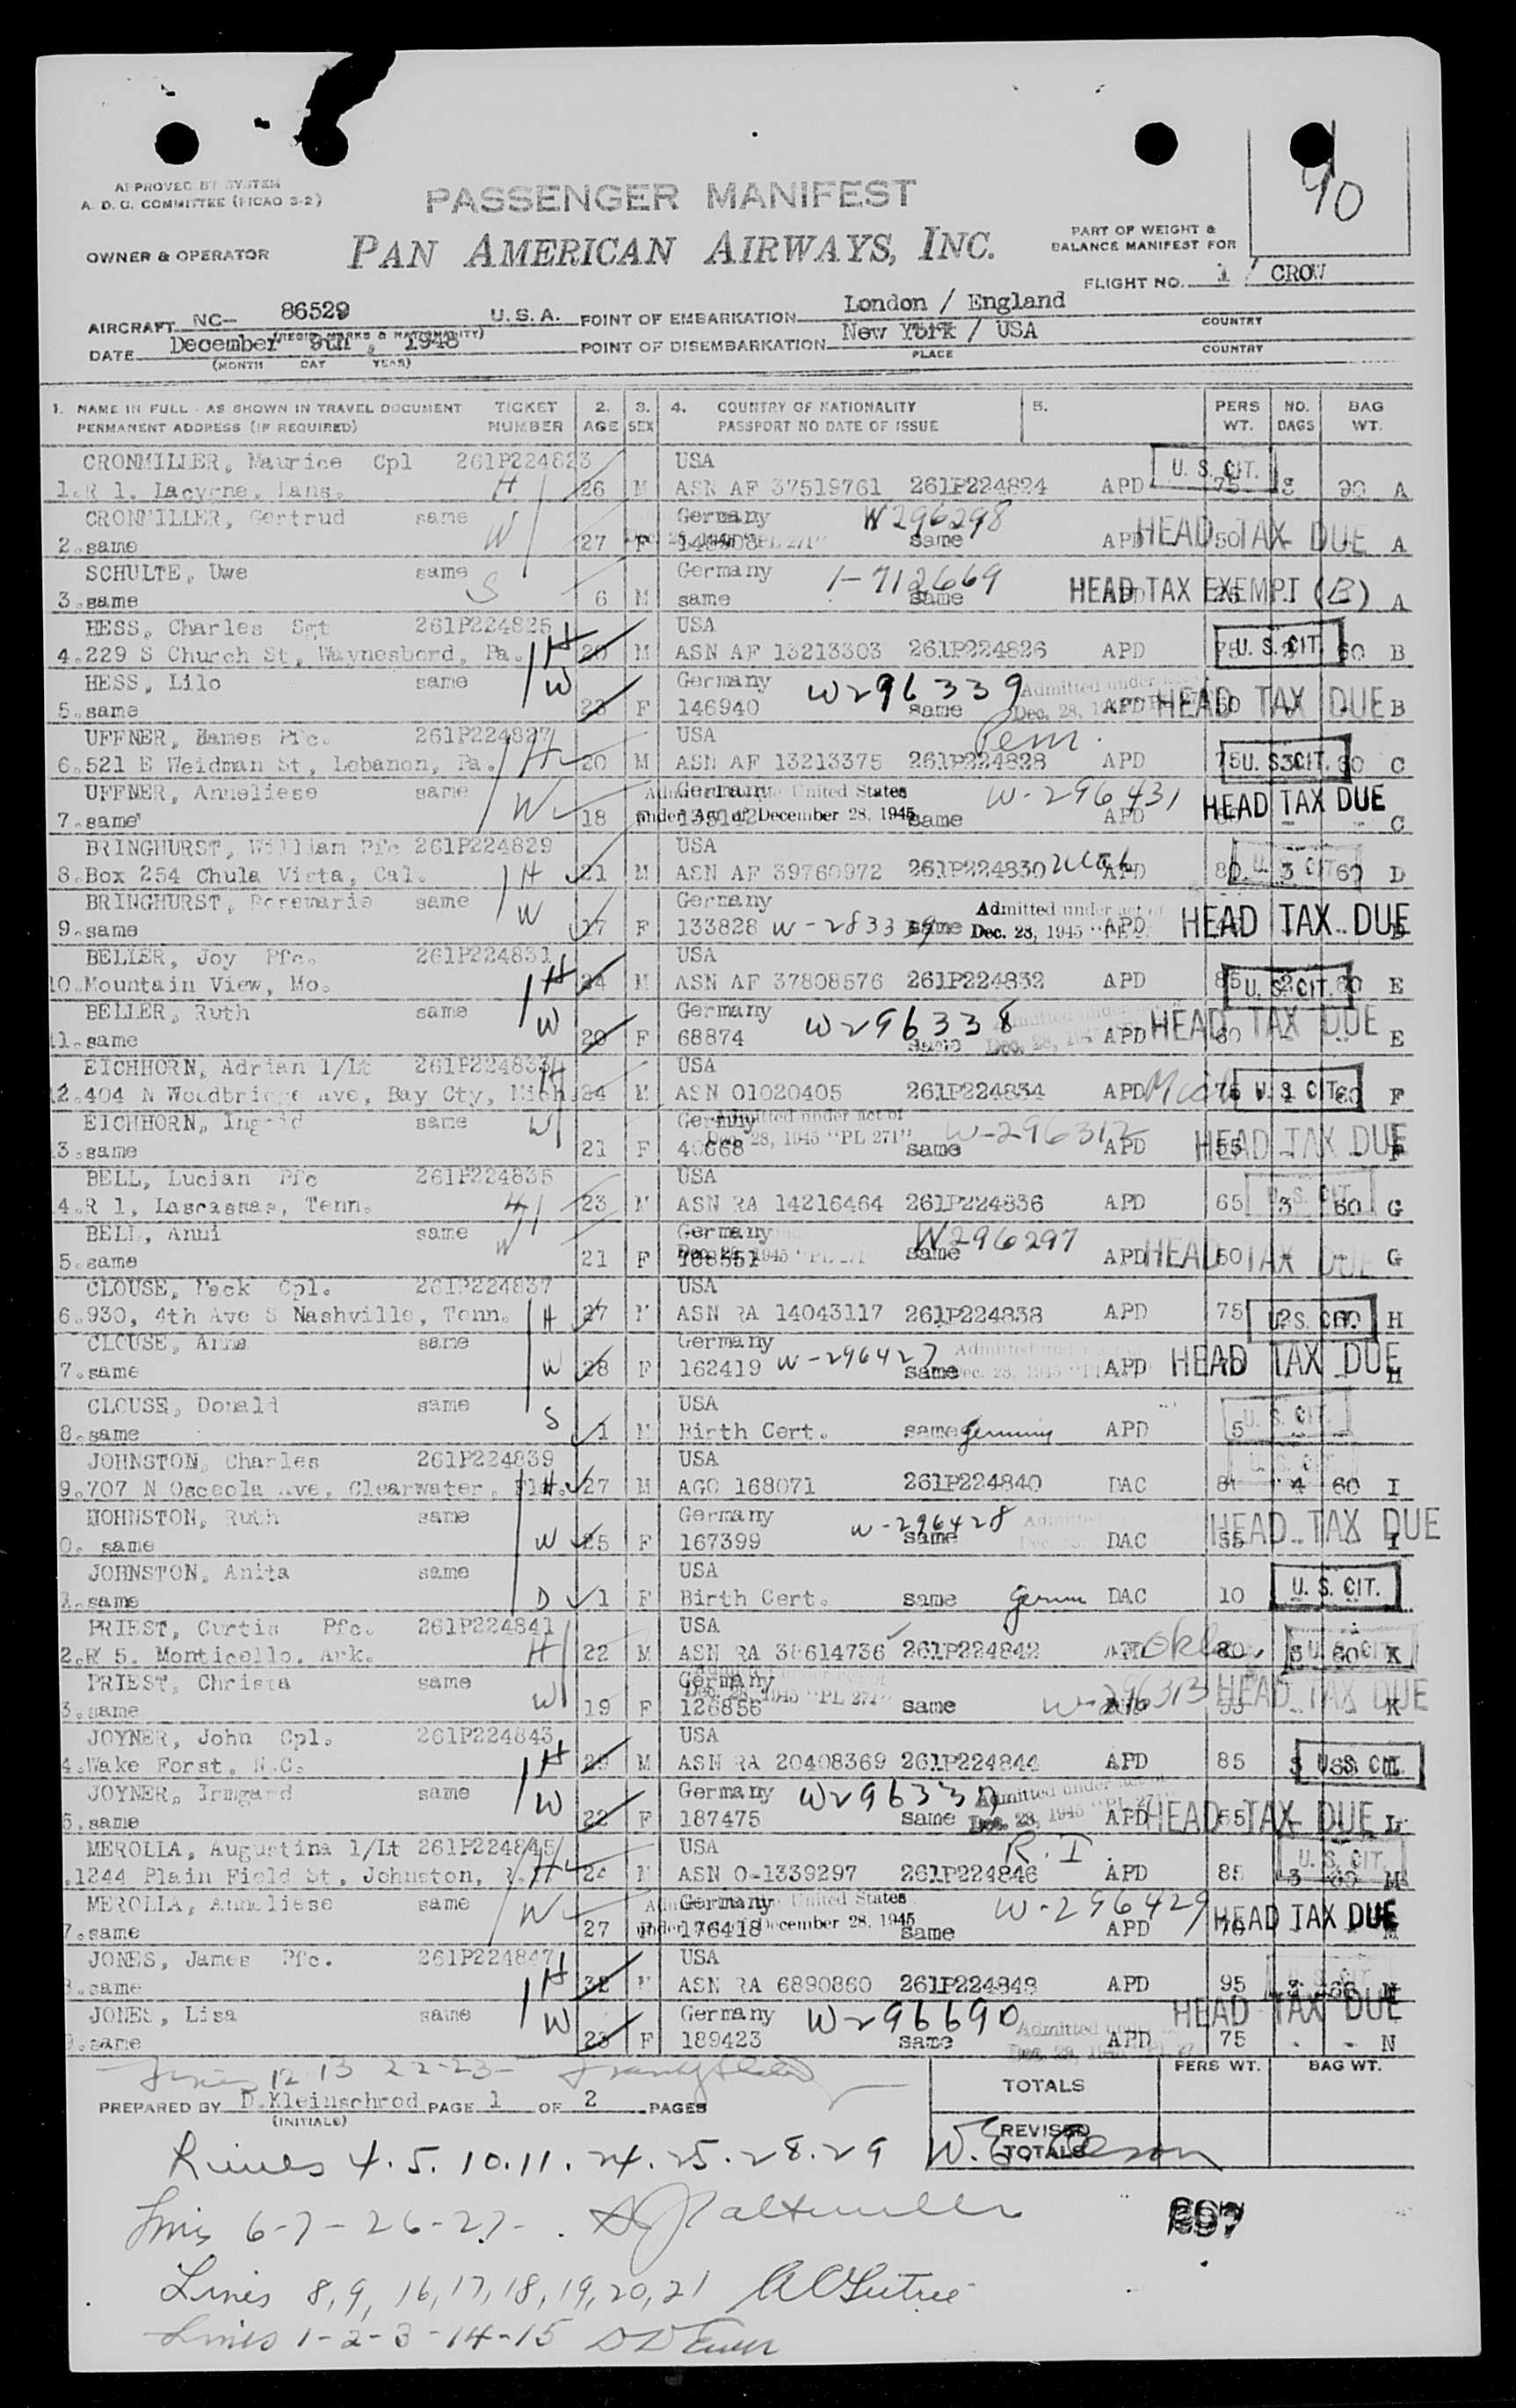 APPROVED BY SYSTEM
A. D. C. COMMITTEE (PICAO 3-2)
PASSENGER MANIFEST
90
OWNER & OPERATOR
PAN AMERICAN AIRWAYS, INC.
PART OF WEIGHT &
BALANCE MANIFEST FOR
FLIGHT NO. 1 / CROW
AIRCRAFT NC- 86529 U. S. A. POINT OF EMBARKATION London / England
(REGIS MARKS & NATIONALITY) COUNTRY
DATE December 9th, 1948 POINT OF DISEMBARKATION New York / USA
(MONTH DAY YEAR) PLACE COUNTRY
1. NAME IN FULL - AS SHOWN IN TRAVEL DOCUMENT TICKET 2. 3. 4. COUNTRY OF NATIONALITY 5. PERS NO. BAG
PERMANENT ADDRESS (IF REQUIRED) NUMBER AGE SEX PASSPORT NO DATE OF ISSUE WT. BAGS WT.
CRONMILLER, Maurice Cpl 261P224823 USA U. S. CIT.
1. R 1. Lacygne, Kans. H 26 M ASN AF 37519761 261P224824 APD 75 90 A
CRONMILLER, Gertrud same W Germany W296298
2. same 27 F same APD HEAD TAX DUE 50 - - A
SCHULTE, Uwe same S Germany 1-712669
3. same 6 M same same HEAD TAX EXEMPT (B) A
HESS, Charles Sgt 261P224825 USA
4. 229 S Church St, Waynesbord, Pa. H 20 M ASN AF 13213303 261P224826 APD 75 U. S. CIT. 60 B
HESS, Lilo same W Germany W296339 Admitted under
5. same 23 F 146940 same Dec. 28, APD HEAD TAX DUE B
UFFNER, Hames Pfc. 261P224827 USA Penn.
6. 521 E Weidman St, Lebanon, Pa. H 20 M ASN AF 13213375 261P224828 APD 75 U. S. CIT. 60 C
UFFNER, Anneliese same W Germany United States W-296431 HEAD TAX DUE
7. same 18 under Act of December 28, 1945 same APD - - C
BRINGHURST, William Pfc 261P224829 USA
8. Box 254 Chula Vista, Cal. H 21 M ASN AF 39760972 261P224830 Utah APD 80 U. S. CIT. 3 60 D
BRINGHURST, Rosemarie same W Germany Admitted under act of
9. same 17 F 133828 W-283339 same Dec. 28, 1945 APD HEAD TAX DUE
BELLER, Joy Pfc. 261P224831 USA
10. Mountain View, Mo. H 24 M ASN AF 37808576 261P224832 APD 85 U. S. CIT. 60 E
BELLER, Ruth same W Germany W296338 Admitted under
11. same 20 F 68874 same Dec. 28, 1945 APD HEAD TAX DUE 60 - - E
EICHHORN, Adrian 1/Lt 261P224833 H USA
2. 404 N Woodbridge Ave, Bay Cty, Mich 24 M ASN 01020405 261P224834 APD Mich U. S. CIT. 60 F
EICHHORN, Ingrid same W Germany Admitted under act of W-296312
3. same 21 F 40668 Dec. 28, 1945 "PL 271" same APD HEAD TAX DUE 55 F
BELL, Lucian Pfc 261P224835 USA
4. R 1, Lascassas, Tenn. H 23 M ASN RA 14216464 261P224836 APD 65 U. S. CIT. 3 60 G
BELL, Anni same W Germany W296297
5. same 21 F 168551 same APD HEAD TAX DUE 50 - - G
CLOUSE, Mack Cpl. 261P224837 USA
6. 930, 4th Ave S Nashville, Tenn. H 27 M ASN RA 14043117 261P224838 APD 75 U. S. CIT. 60 H
CLOUSE, Anna same W Germany
7. same 28 F 162419 W-296427 same APD HEAD TAX DUE H
CLOUSE, Donald same S USA
8. same 1 M Birth Cert. same Germany APD 5 U. S. CIT.
JOHNSTON, Charles 261P224839 USA
9. 707 N Osceola Ave, Clearwater, Fla. H 27 M AGO 168071 261P224840 DAC 81 4 60 I
HOHNSTON, Ruth same Germany W-296428
0. same W 25 F 167399 same DAC 55 HEAD TAX DUE I
JOHNSTON, Anita same USA
1. same D 1 F Birth Cert. same DAC 10 U. S. CIT.
PRIEST, Curtis Pfc. 261P224841 USA
2. R 5. Monticello. Ark. H 22 M ASN RA 38614736 261P224842 Okla 80 U. S. CIT. 60 K
PRIEST, Christa same Germany
3. same W 19 F 126856 same W-296313 HEAD TAX DUE K
JOYNER, John Cpl. 261P224843 USA
4. Wake Forst. N.C. H M ASN RA 20408369 261P224844 APD 85 U. S. CIT.
JOYNER, Irmgard same W Germany Admitted under act of
5. same 22 F 187475 same Dec. 28, 1945 APD HEAD TAX DUE L
MEROLLA, Augustina 1/Lt 261P224845 USA R.I.
1244 Plain Field St, Johnston, R.I. H 24 M ASN O-1339297 261P224846 APD 85 U. S. CIT. 3 60 M
MEROLLA, Anneliese same W Germany United States W-296429
7. same 27 F 176418 December 28, 1945 same APD 70 HEAD TAX DUE
JONES, James Pfc. 261P224847 USA
same H 32 M ASN RA 6890860 261P224848 APD 95 N
JONES, Lisa same W Germany W296690 HEAD TAX DUE
same F 189423 same Admitted APD 75 - - N
Lines 12 13 22-23
PERS WT. BAG WT.
TOTALS
PREPARED BY D.Kleinschrod PAGE 1 OF 2 PAGES
(INITIALS)
REVISED
TOTALS
Lines 4.5.10.11.24.25.28.29
Lines 6-7-26-27-
Lines 8,9,16,17,18,19,20,21
Lines 1-2-3-14-15